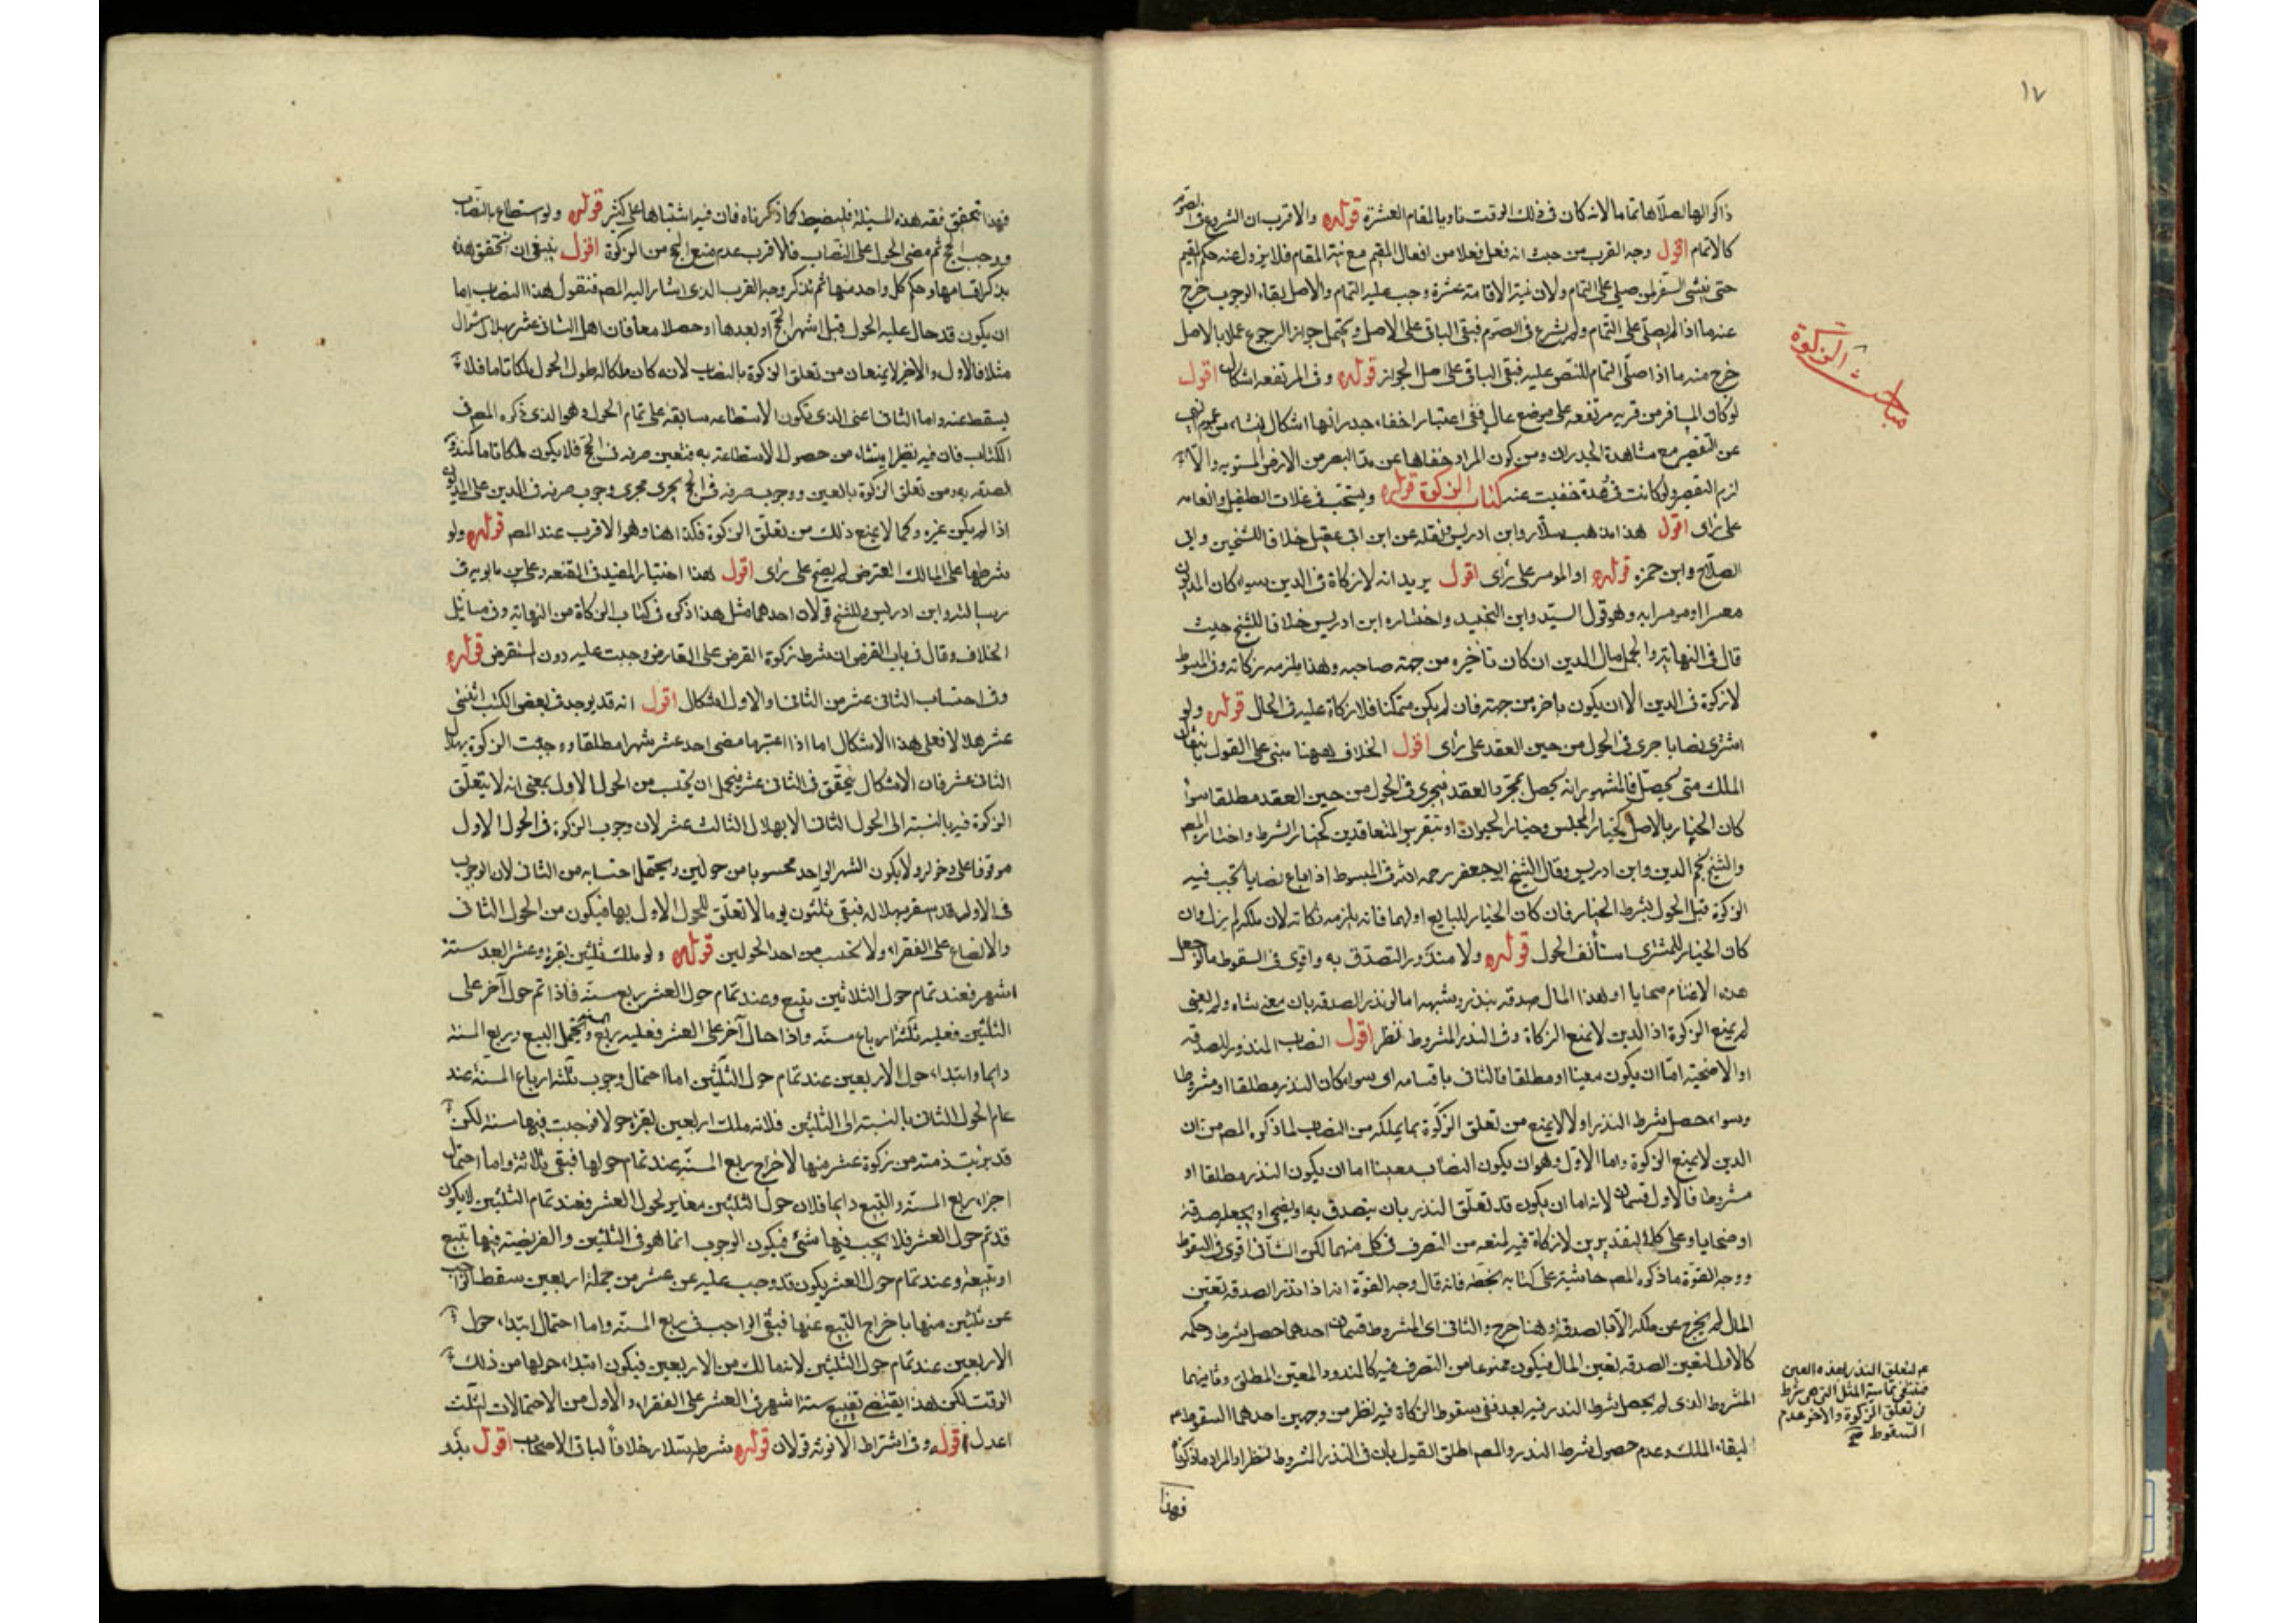 ١٧
ذاكرا لها لصلاها تماما لانه كان فى ذلك الوقت ناويا لمقام العشرة قوله والاقرب ان الشروع فى الصوم
كالاتمام اقول وجه القرب من حيث انه فعل فعلا من افعال المقيم مع نية المقام فلا يزول عنه حكم المقيم
حتى ينشئ السفر لمن صلى على التمام ولان نية الاقامة عشرة وجب عليه التمام والاصل بقاء الوجوب خرج
عنه ما اذا لم يصل على التمام ولم يشرع فى الصوم فبقى الباقى على الاصل ويحتمل جواز الرجوع عملا بالاصل
خرج منه ما اذا صلى التمام للنص عليه فبقى الباقى على اصل الجواز قوله وفى المرتفعه اشكال اقول
مباحث الزكوة
لو كان المسافر من قريه مرتفعه على موضع عال ففى اعتبار اخفاء جدرانها اشكال ينشاء من عموم النهى
عن التقصير مع مشاهدة الجدران ومن كون المراد خفاها عن مد البصر من الارض المستويه والا
لزم التقصير ولو كانت فى وهدة خفيت عنه كتاب الزكوة قوله ويستحب فى غلات الطفل وانعامه
على راى اقول هذا مذهب سلار وابن ادريس ونقله عن ابن ابى عقيل خلافا للشيخين وابى
الصلاح وابن حمزه قوله او الموسر على راى اقول يريد انه لا زكاة فى الدين سواء كان المديون
معسرا او موسرا به وهو قول السيد وابن الجنيد واختاره ابن ادريس خلافا للشيخ حيث
قال فى النهايه والجمل مال الدين ان كان تاخيره من جهة صاحبه فهذا يلزمه زكاته وفى المبسوط
لا زكوة فى الدين الا ان يكون تاخره من جهته فان لم يكن متمكنا فلا زكاة عليه فى الحال قوله ولو
اشترى نصابا جرى فى الحول من حين العقد على راى اقول الخلاف ههنا مبنى على القول بانتقال
الملك متى يحصل فالمشهور انه يحصل بمجرد العقد فيجرى فى الحول من حين العقد مطلقا سواء
كان الخيار بالاصل كخيار المجلس وخيار الحيوان او بتقرير المتعاقدين كخيار الشرط واختاره المصم
والشيخ نجم الدين وابن ادريس وقال الشيخ ابو جعفر رحمه الله فى المبسوط اذا باع نصابا يجب فيه
الزكوة قبل الحول بشرط الخيار فان كان الخيار للبايع او لهما فانه يلزمه زكاته لان ملكه لم يزل وان
كان الخيار للمشترى استأنف الحول قوله ولا منذور التصدق به واقوى فى السقوط ما لو جعل
هذه الاغنام ضحايا او هذا المال صدقه بنذر وشبهه اما لو نذر الصدقه باربعين شاه ولم يعين
لم يمنع الزكوة اذ الدين لا يمنع الزكاة وفى النذر المشروط نظر اقول النصاب المنذور للصدقه
او الاضحية اما ان يكون معينا او مطلقا فالثانى باقسامه اى سواء كان النذر مطلقا او مشروطا
وسواء حصل شرط النذر او لا لا يمنع من تعلق الزكوة بما يملكه من النصاب لما ذكره المصم من ان
الدين لا يمنع الزكوة واما الاول وهو ان يكون النصاب معينا اما ان يكون النذر مطلقا او
مشروطا فالاول قسمان لانه اما ان يكون قد تعلق النذر بان يتصدق به او يضحى او يجعله صدقه
او ضحايا وعلى كلا التقديرين لا زكاة فيه لمنعه من التصرف فى كل منهما لكن الثانى اقوى فى السقوط
ووجه القوة ما ذكره المصم حاشية على كتابه بخطه فانه قال وجه القوة انه اذا نذر الصدقه بعين
المال لم يخرج عن ملكه الا بالصدقه وهنا خرج والثانى اى المشروط قسمان احدهما حصل شرط وحكمه
كالاول لتعين الصدقه بعين المال فيكون ممنوعا من التصرف فيه كالمنذور المعين المطلق وثانيهما
المشروط الذى لم يحصل شرط النذر فيه بعد ففى سقوط الزكاة فيه نظر من وجهين احدهما السقوط
لتعلق النذر بهذه العين
فينتفى تماميه الملك التى هى شرط
فى تعلق الزكوة والاخر عدم
السقوط صح
لبقاء الملك وعدم حصول شرط النذر والمصم اطلق القول بان فى النذر المشروط نظرا والمراد ما ذكرناه
فهذا
فهذا تحقق فقه هذه المسئلة فليضبط كما ذكرناه فان فيه اشتباها على كثير قوله ولو استطاع بالنصاب
ووجب الحج ثم مضى الحول على النصاب فالاقرب عدم منع الحج من الزكوة اقول ينبغى ان نحقق هذه
بذكر اقسامها وحكم كل واحد منها ثم نذكر وجه القرب الذى اشار اليه المصم فنقول هذا النصاب اما
ان يكون قد حال عليه الحول قبل اشهر الحج او بعدها او حصلا معا فان اهل الثانى عشر بهلال شوال
مثلا فالاول والاخير لا يمنعان من تعلق الزكوة بالنصاب لانه كان ملكا له طول الحول ملكا تاما فلا
يسقط عنه واما الثانى اعنى الذى تكون الاستطاعه سابقة على تمام الحول وهو الذى ذكره المصم فى
الكتاب فان فيه نظرا ينشاء من حصول الاستطاعة به فتعين صرفه فى الحج فلا يكون ملكا تاما كمنذور
الصدقه به ومن تعلق الزكوة بالعين ووجوب صرفه فى الحج يجرى مجرى وجوب صرفه فى الدين على المديون
اذا لم يكن غيره وكما لا يمنع ذلك من تعلق الزكوة فكذا هنا وهو الاقرب عند المصم قوله ولو
شرطها على المالك المقترض لم يصح على راى اقول هذا اختيار المفيد فى المقنعه وعلى بن بابويه فى
رسالته وابن ادريس وللشيخ قولان احدهما مثل هذا ذكره فى كتاب الزكاة من النهايه وفى مسائل
الخلاف وقال فى باب القرض ان شرط زكوة القرض على القارض وجبت عليه دون المستقرض قوله
وفى احتساب الثانى عشر من الثانى او الاول اشكال اقول انه قد يوجد فى بعض الكتب اثنى
عشر هلالا فعلى هذا لا اشكال اما اذا اعتبرنا مضى احد عشر شهرا مطلقا ووجبت الزكوة بهلال
الثانى عشر فان الاشكال يتحقق فى الثانى عشر فيحتمل ان يحتسب من الحول الاول بمعنى انه لا يتعلق
الزكوة فيه بالنسبة الى الحول الثانى الا بهلال الثالث عشر لان وجوب الزكوة فى الحول الاول
موقوفا على دخوله ولا يكون الشهر الواحد محسوبا من حولين ويحتمل احتسابه من الثانى لان الوجوب
فى الاول قد استقر بهلاله فبقى ثلثون يوما لا تعلق للحول الاول بها فيكون من الحول الثانى
والا لضاع على الفقراء ولا تحتسب من احد الحولين قوله ولو ملك ثلثين بقره وعشرا بعد ستة
اشهر فعند تمام حول الثلاثين تبيع وعند تمام حول العشر ربع مسنة فاذا تم حول آخر على
الثلثين فعليه ثلثة ارباع مسنة واذا حال آخر على العشر فعليه ربع مسنة ويحتمل التبيع وربع المسنة
دايما وابتداء حول الاربعين عند تمام حول الثلثين اما احتمال وجوب ثلثة ارباع المسنة عند
تمام الحول الثانى بالنسبة الى الثلثين فلانه ملك اربعين بقرة حولا فوجبت فيها مسنة لكن
قد برئت ذمته من زكوة عشر منها لاخراج ربع المسنة عند تمام حولها فبقى ثلاثة واما احتمال
اجزاء ربع المسنة والتبيع دايما فلان حول الثلثين مغاير لحول العشر فعند تمام الثلثين لا يكون
قد تم حول العشر فلا يجب فيها شئ فيكون الوجوب انما هو فى الثلثين والفريضة فيها تبيع
او تبيعة وعند تمام حول العشر يكون قد وجب عليه عن عشر من جملة اربعين سقط الواجب
عن ثلثين منها باخراج التبيع عنها فبقى الواجب فى ربع المسنة واما احتمال ابتداء حول
الاربعين عند تمام حول الثلثين لانه مالك من الاربعين فيكون ابتداء حولها من ذلك
الوقت لكن هذا يقتضى تضييع ستة اشهر فى العشر على الفقراء والاول من الاحتمالات الثلث
اعدل قوله وفى اشتراط الانوثة قولان قوله شرط سلار خلافا لباقى الاصحاب اقول يريد